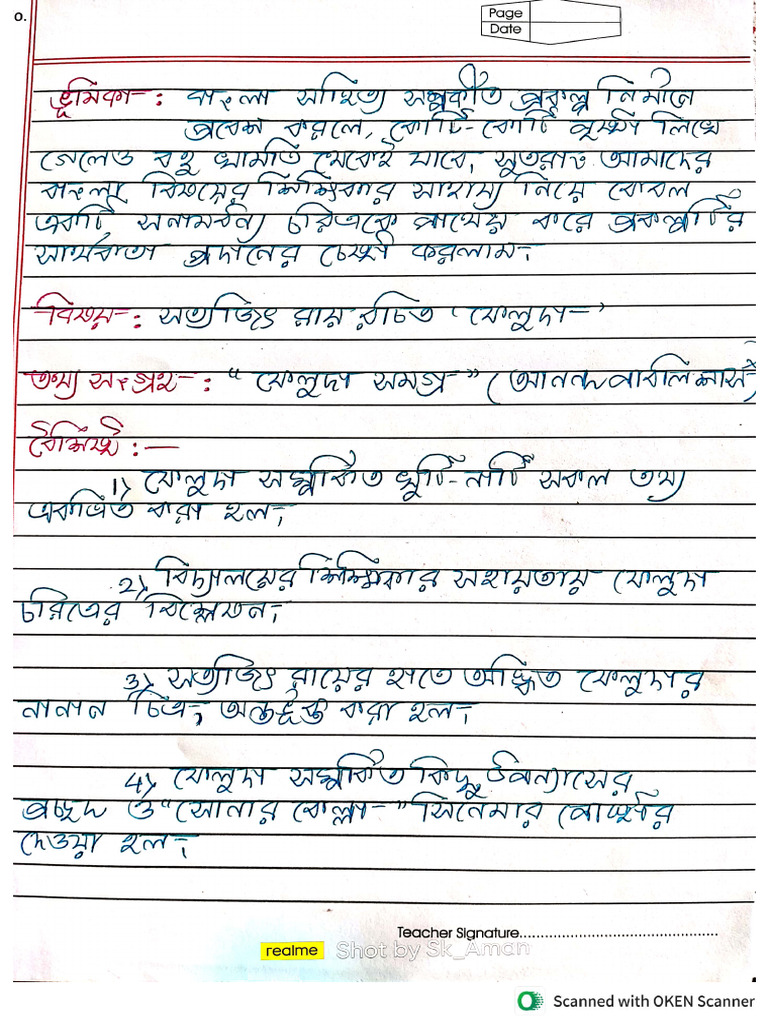 0.
Page
Date
ভূমিকা-: বাংলা সাহিত্য সম্পর্কীত প্রকল্প নির্মানে
প্রবেশ করলে, কোটি-কোটি পৃষ্ঠা লিখে
গেলেও বহু খামতি থেকেই যাবে, সুতরাং আমাদের
বাংলা বিষয়ের শিক্ষিকার সাহায্য নিয়ে কেবল
একটি স্বনামধন্য চরিত্রকে পাথেয় করে প্রকল্পটির
সার্থকতা প্রদানের চেষ্টা করলাম।
বিষয়-: সত্যজিৎ রায় রচিত 'ফেলুদা-'
তথ্য সংগ্রহ-: "ফেলুদা সমগ্র-" (আনন্দ পাবলিশার্স)
বৈশিষ্ট্য :—
1) ফেলুদা সম্পর্কিত খুটি-নাটি সকল তথ্য
একত্রিত করা হল।
2) বিদ্যালয়ের শিক্ষিকার সহায়তায় ফেলুদা
চরিত্রের বিশ্লেষন।
3) সত্যজিৎ রায়ের হাতে অঙ্কিত ফেলুদার
নানান চিত্র, অন্তর্ভুক্ত করা হল।
4) ফেলুদা সম্পর্কিত কিছু উপন্যাসের
প্রচ্ছদ ও "সোনার কেল্লা-" সিনেমার পোস্টার
দেওয়া হল।
Teacher Signature
realme Shot by Sk_Aman
Scanned with OKEN Scanner